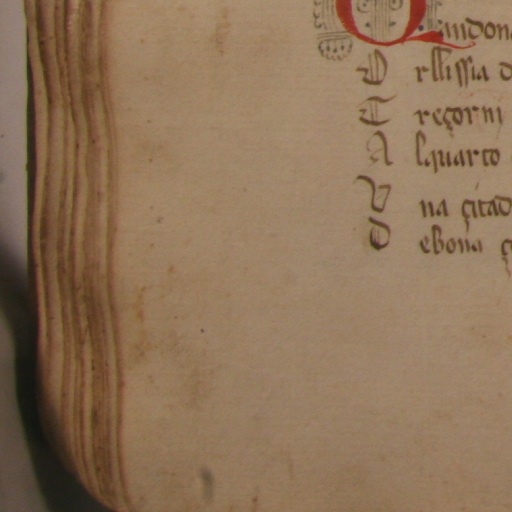 Quandona
D ellissia d
E regorni
A lquarto
V na çitad
D ebona ç